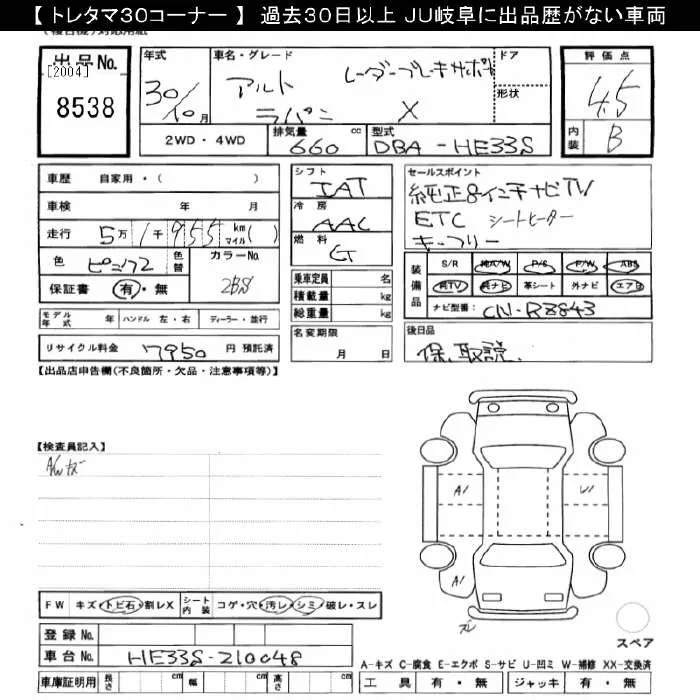 【 トレタマ30コーナー 】 過去30日以上 JU岐阜に出品歴がない車両
出品No.
[2004]
8538
年式
30/10月
車名・グレード
アルト レーダーブレーキサポート
ラパン X
ドア
形状
評価点
4.5
内装 B
2WD・4WD
排気量 660 cc
型式 DBA-HE33S
車歴 自家用・( )
車検 年 月
走行 5万1千955 km マイル( )
色 ピンク2 色替
カラーNo. 2BS
保証書 有・無
シフト IAT
冷房 AAC
燃料 G
乗車定員 名
積載量 kg
総重量 kg
セールスポイント
純正8インチナビTV
ETC シートヒーター
キーフリー
装備品
S/R 純A/W P/S P/W ABS
純TV 純ナビ 革シート 外ナビ エアB
ナビ型番: CN-RZ843
モデル年式 年 ハンドル 左・右 ディーラー・並行
リサイクル料金 7950 円 預託済
名変期限 月 日
後日品
保、取説、
【出品店申告欄(不良箇所・欠品・注意事項等)】
【検査員記入】
AWキズ
A1
U1
A1
ズレ
スペア
FW キズ・トビ石・割レX
シート内装 コゲ・穴・汚レ・シミ・破レ・スレ
登録No.
車台No. HE33S-210048
車庫証明用 長さ cm 幅 cm 高さ cm
A-キズ C-腐食 E-エクボ S-サビ U-凹ミ W-補修 XX-交換済
工具 有・無 ジャッキ 有・無